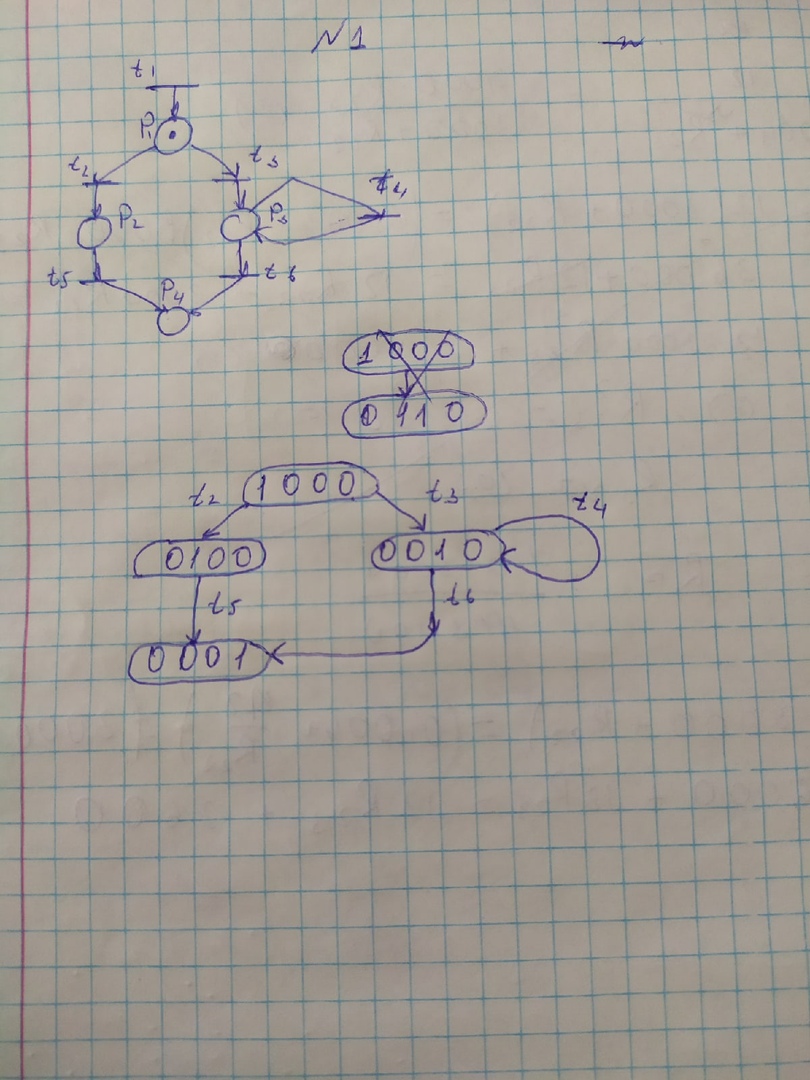 N1
t1
P1
t2 t3
t4
P2 P3
t5 t6
P4
1 0 0 0
0 1 1 0
1 0 0 0
t2 t3
t4
0 1 0 0 0 0 1 0
t5 t6
0 0 0 1